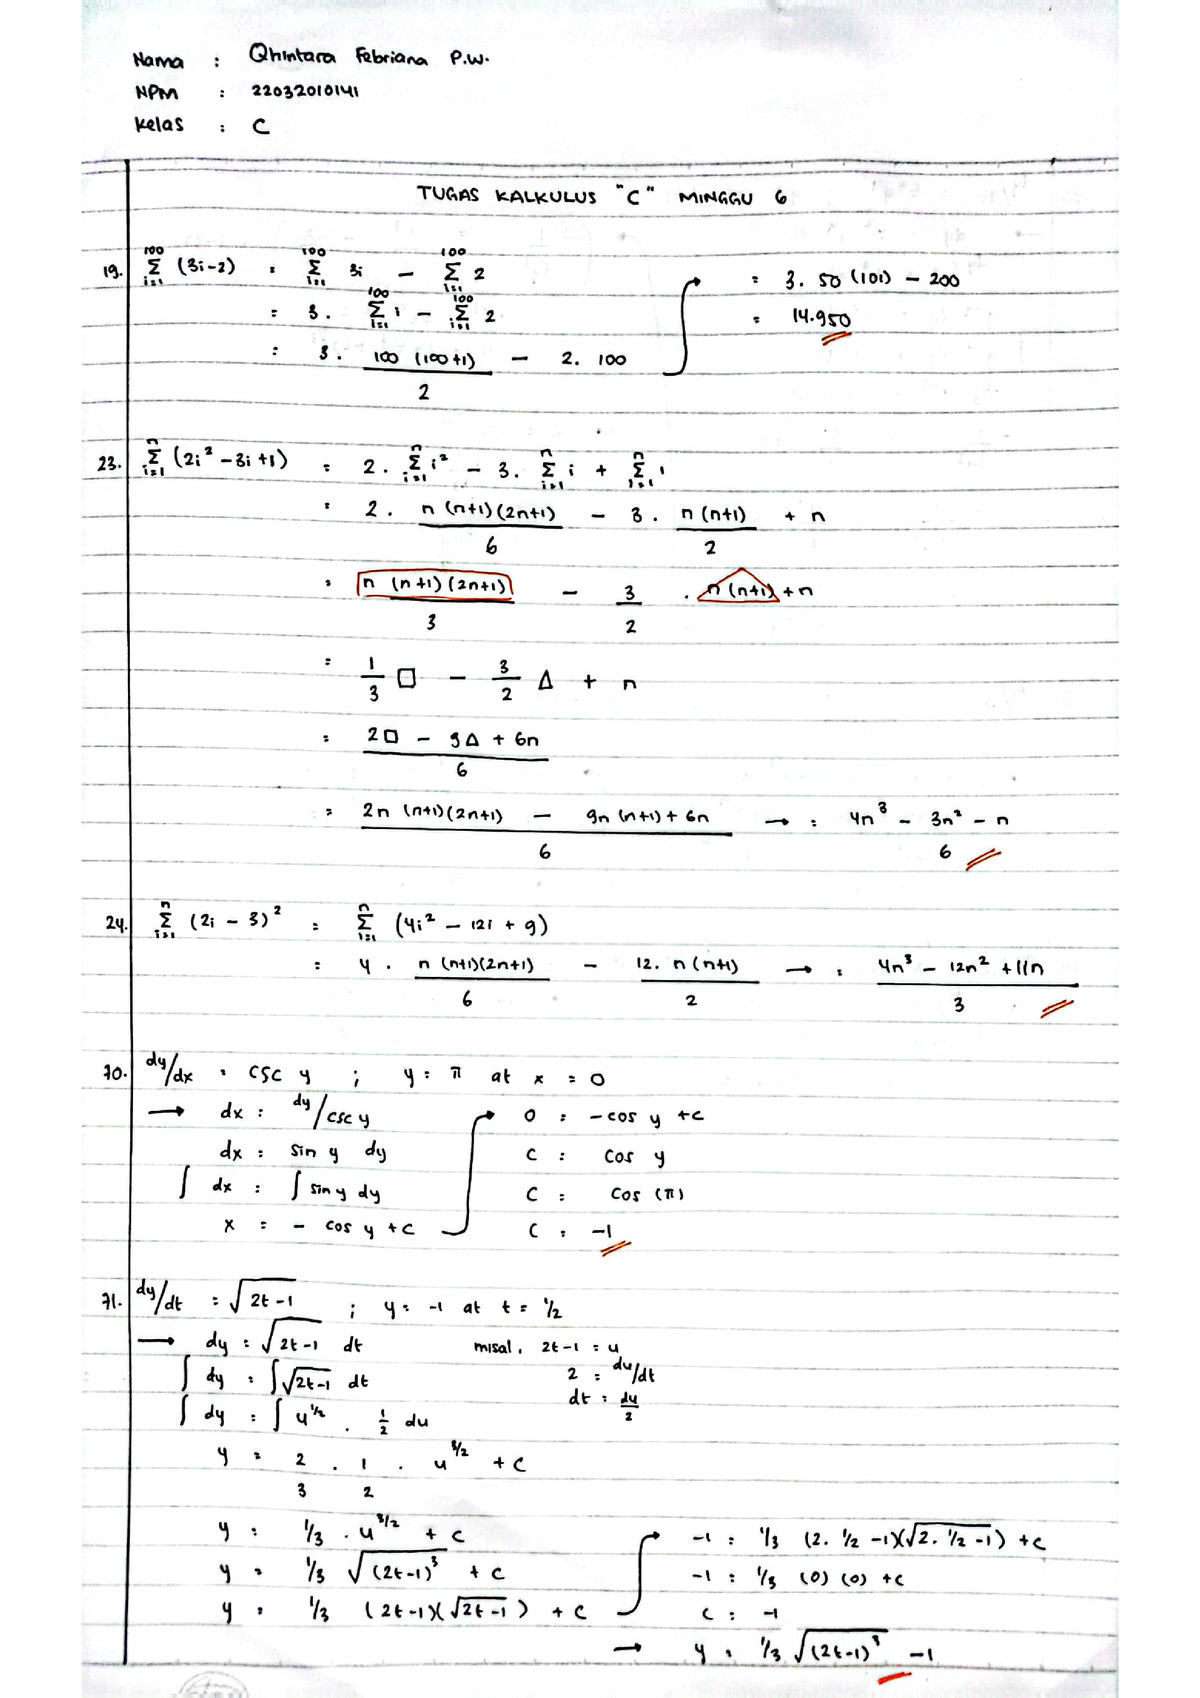 Nama : Qhintara Febriana P.W.
NPM : 22032010141
Kelas : C
TUGAS KALKULUS "C" MINGGU 6
19. 100 Σ i=1 (3i-2) = 100 Σ i=1 3i - 100 Σ i=1 2
= 3. 100 Σ i=1 i - 100 Σ i=1 2
= 3. 100 (100+1) / 2 - 2. 100
= 3. 50 (101) - 200
= 14.950
23. n Σ i=1 (2i² - 3i + 1) = 2. n Σ i=1 i² - 3. n Σ i=1 i + n Σ i=1 1
= 2. n (n+1)(2n+1) / 6 - 3. n (n+1) / 2 + n
= n (n+1)(2n+1) / 3 - 3/2 . n(n+1) + n
= 1/3 □ - 3/2 Δ + n
= 2□ - 9Δ + 6n / 6
= 2n (n+1)(2n+1) - 9n (n+1) + 6n / 6 → = 4n³ - 3n² - n / 6
24. n Σ i=1 (2i - 3)² = n Σ i=1 (4i² - 12i + 9)
= 4 . n (n+1)(2n+1) / 6 - 12. n (n+1) / 2 → = 4n³ - 12n² + 11n / 3
70. dy/dx = csc y ; y = π at x = 0
→ dx = dy/csc y
dx = sin y dy
∫ dx = ∫ sin y dy
x = - cos y + c
0 = - cos y + c
C = cos y
C = cos (π)
C = -1
71. dy/dt = √2t-1 ; y = -1 at t = 1/2
→ dy = √2t-1 dt
∫ dy = ∫ √2t-1 dt
∫ dy = ∫ u^1/2 . 1/2 du
y = 2/3 . 1/2 . u^3/2 + C
y = 1/3 . u^3/2 + C
y = 1/3 √(2t-1)³ + C
y = 1/3 (2t-1)(√2t-1) + C
misal, 2t-1 = u
2 = du/dt
dt = du/2
-1 = 1/3 (2. 1/2 -1)(√2. 1/2 -1) + C
-1 = 1/3 (0) (0) + C
C = -1
→ y = 1/3 √(2t-1)³ - 1